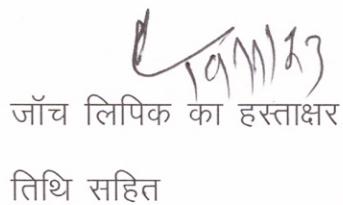 जॉच लिपिक का हस्ताक्षर
तिथि सहित